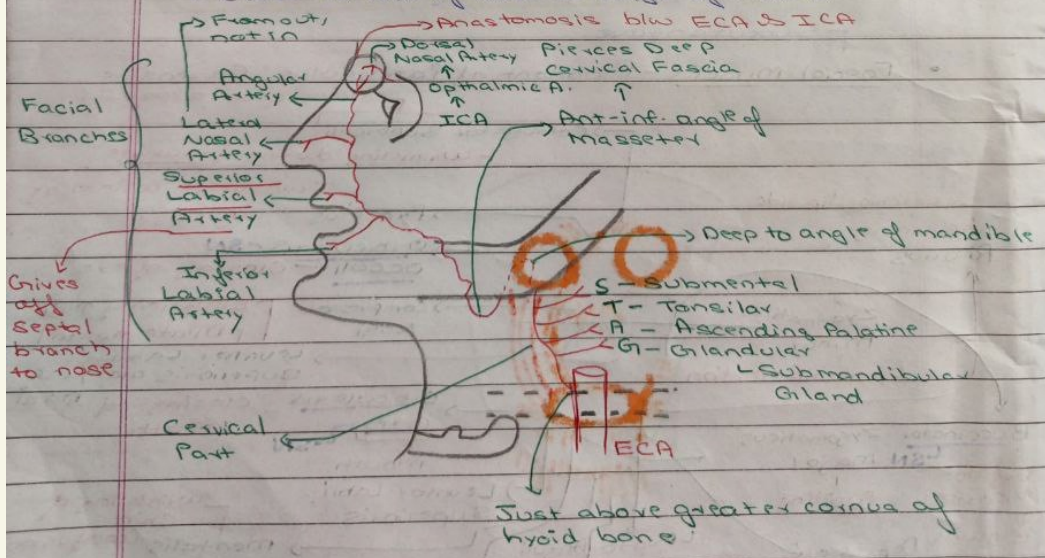 → From out,
not in
→ Anastomosis b/w ECA & ICA
→ Dorsal
Nasal Artery
↑
Opthalmic A.
↑
ICA
Pierces Deep
cervical Fascia
↑
Ant-inf. angle of
Masseter
Facial
Branches
Angular
Artery
Lateral
Nasal
Artery
Superior
Labial
Artery
Inferior
Labial
Artery
Gives
off
septal
branch
to nose
→ Deep to angle of mandible
S - Submental
T - Tonsilar
A - Ascending Palatine
G - Glandular
Submandibular
Gland
Cervical
Part
ECA
Just above greater cornua of
hyoid bone